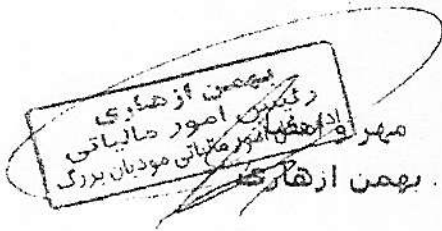 بهمن ازهاری
رئیس امور مالیاتی
امور مالیاتی مودیان بزرگ
مهر و امضا
بهمن ازهاری